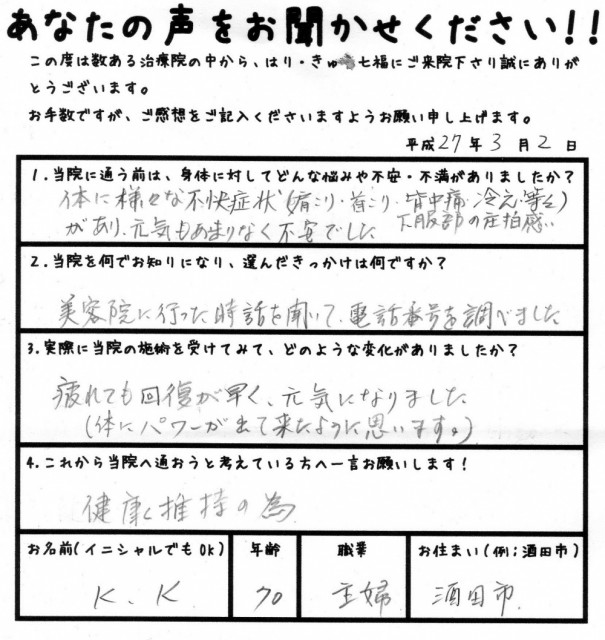 あなたの声をお聞かせください!!
この度は数ある治療院の中から、はり・きゅう七福にご来院下さり誠にありが
とうございます。
お手数ですが、ご感想をご記入くださいますようお願い申し上げます。
平成27年3月2日
1.当院に通う前は、身体に対してどんな悩みや不安・不満がありましたか?
体に様々な不快症状(肩こり・首こり・背中痛・冷え、等々)
下服部の圧拍感
があり、元気もあまりなく不安でした
2.当院を何でお知りになり、選んだきっかけは何ですか?
美容院に行った時話を聞いて、電話番号を調べました
3.実際に当院の施術を受けてみて、どのような変化がありましたか?
疲れても回復が早く、元気になりました
(体にパワーが出て来たように思います。)
4.これから当院へ通おうと考えている方へ一言お願いします!
健康維持の為
お名前(イニシャルでもOK) 年齢 職業 お住まい(例;酒田市)
K.K 70 主婦 酒田市